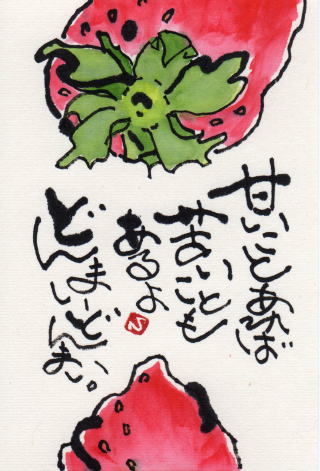 甘いことあれば
苦いことも
あるよ
どんまーいどんまい。